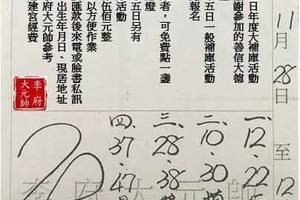 日年度大補庫活動
謝參加的善信大德
五日一般補庫活動
報名
者，可免費點一盞
燈
五日另有
活動
伍佰元整
以方便作業
匯款後來電或臉書私訊
出生年月日、現居地址
府大元帥參考。
建宮經費
李府
大元帥
11月28日至12
一、12.22
二、10.30
三、28.38
四、37.47
李府大元帥